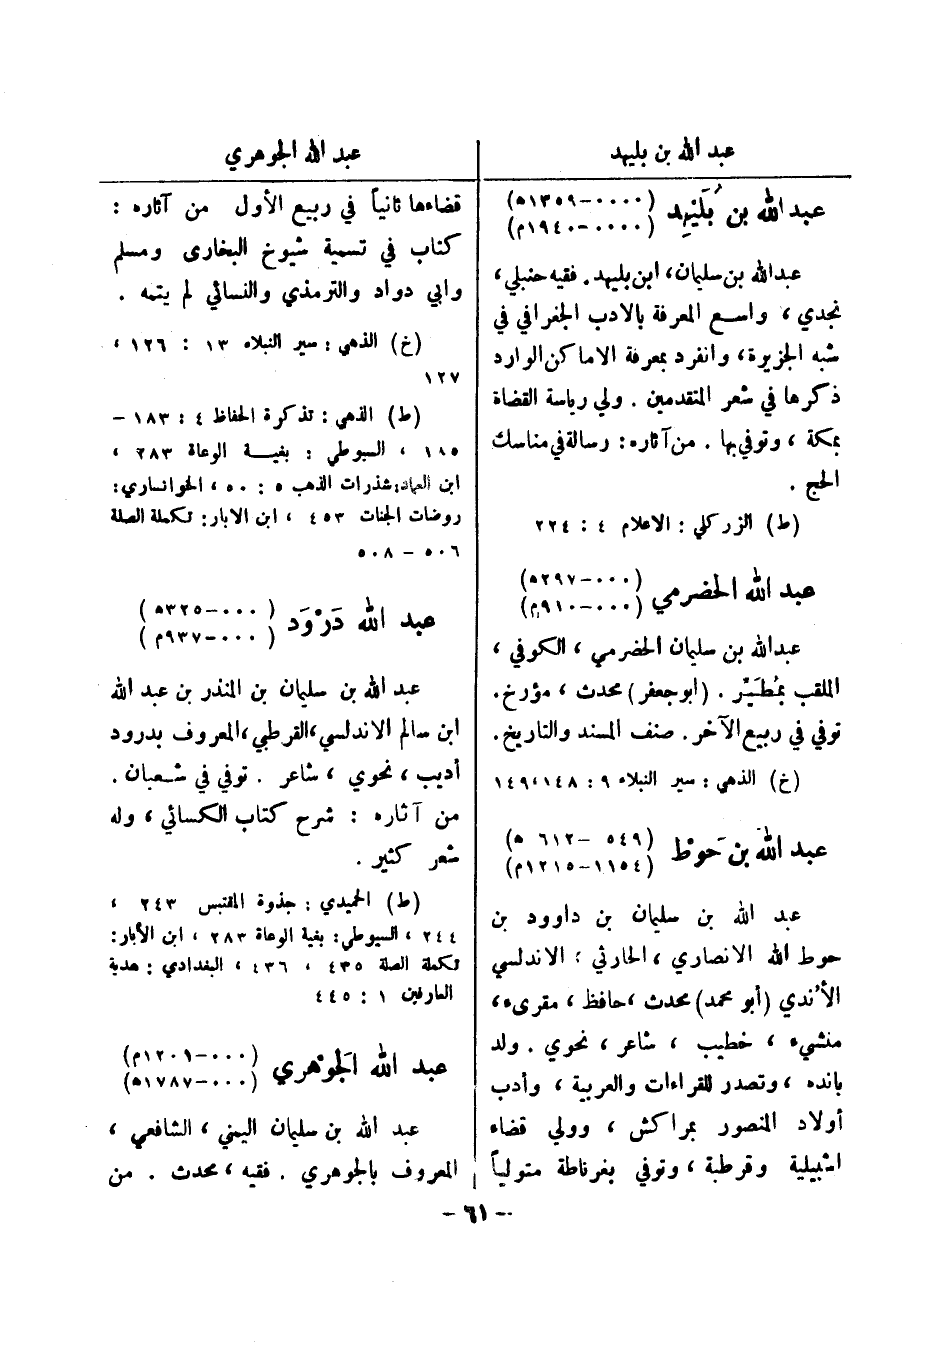 عبد الله بن بليهد
عبد الله بن بُلَيْهِد (٠٠٠٠–١٣٥٩ ه) (٠٠٠٠–١٩٤٠م)
عبدالله بن سليمان، ابن بليهد. فقيه حنبلي،
نجدي، واسع المعرفة بالادب الجغرافي في
شبه الجزيرة، وانفرد بمعرفة الاماكن الوارد
ذكرها في شعر المتقدمين. ولي رياسة القضاة
بمكة، وتوفي بها. من آثاره: رسالة في مناسك
الحج.
(ط) الزركلي: الاعلام ٤: ٢٢٤
عبد الله الحضرمي (٠٠٠–٢٩٧ ه) (٠٠٠–٩١٠م)
عبدالله بن سليمان الحضرمي، الكوفي،
الملقب بمُطَيَّر. (ابو جعفر) محدث، مؤرخ.
توفي في ربيع الآخر. صنف المسند والتاريخ.
(خ) الذهبي: سير النبلاء ٩: ١٤٨، ١٤٩
عبد الله بن حَوْط (٥٤٩–٦١٢ ه) (١١٥٤–١٢١٥م)
عبد الله بن سليمان بن داوود بن
حوط الله الانصاري، الحارثي؛ الاندلسي
الأُندي (أبو محمد) محدث، حافظ، مقرىء،
منشيء، خطيب، شاعر، نحوي. ولد
بانده، وتصدر للقراءات والعربية، وأدب
أولاد المنصور بمراكش، وولي قضاء
اشبيلية وقرطبة، وتوفي بغرناطة متولياً
عبد الله الجوهري
قضاءها ثانياً في ربيع الأول من آثاره:
كتاب في تسمية شيوخ البخارى ومسلم
وابي دواد والترمذي والنسائي لم يتمه.
(خ) الذهبي: سير النبلاء ١٣: ١٢٦،
١٢٧
(ط) الذهبي: تذكرة الحفاظ ٤: ١٨٣–
١٨٥، السيوطي: بغيـة الوعاة ٢٨٣،
ابن العماد: شذرات الذهب ٥: ٥٠، الخوانساري:
روضات الجنات ٤٥٣، ابن الابار: تكملة الصلة
٥٠٦–٥٠٨
عبد الله دَرْوَد (٠٠٠–٣٢٥ ه) (٠٠٠–٩٣٧م)
عبد الله بن سليمان بن المنذر بن عبد الله
ابن سالم الاندلسي، القرطبي، المعروف بدرود
أديب، نحوي، شاعر. توفي في شعبان.
من آثاره: شرح كتاب الكسائي، وله
شعر كثير.
(ط) الحميدي: جذوة المقتبس ٢٤٣،
٢٤٤، السيوطي: بغية الوعاة ٢٨٣، ابن الأبار:
تكملة الصلة ٤٣٥، ٤٣٦، البغدادي: هدية
العارفين ١: ٤٤٥
عبد الله الجَوْهري (٠٠٠–١٢٠١م) (٠٠٠–١٧٨٧ه)
عبد الله بن سليمان اليمني، الشافعي،
المعروف بالجوهري. فقيه، محدث. من
– ٦١ –